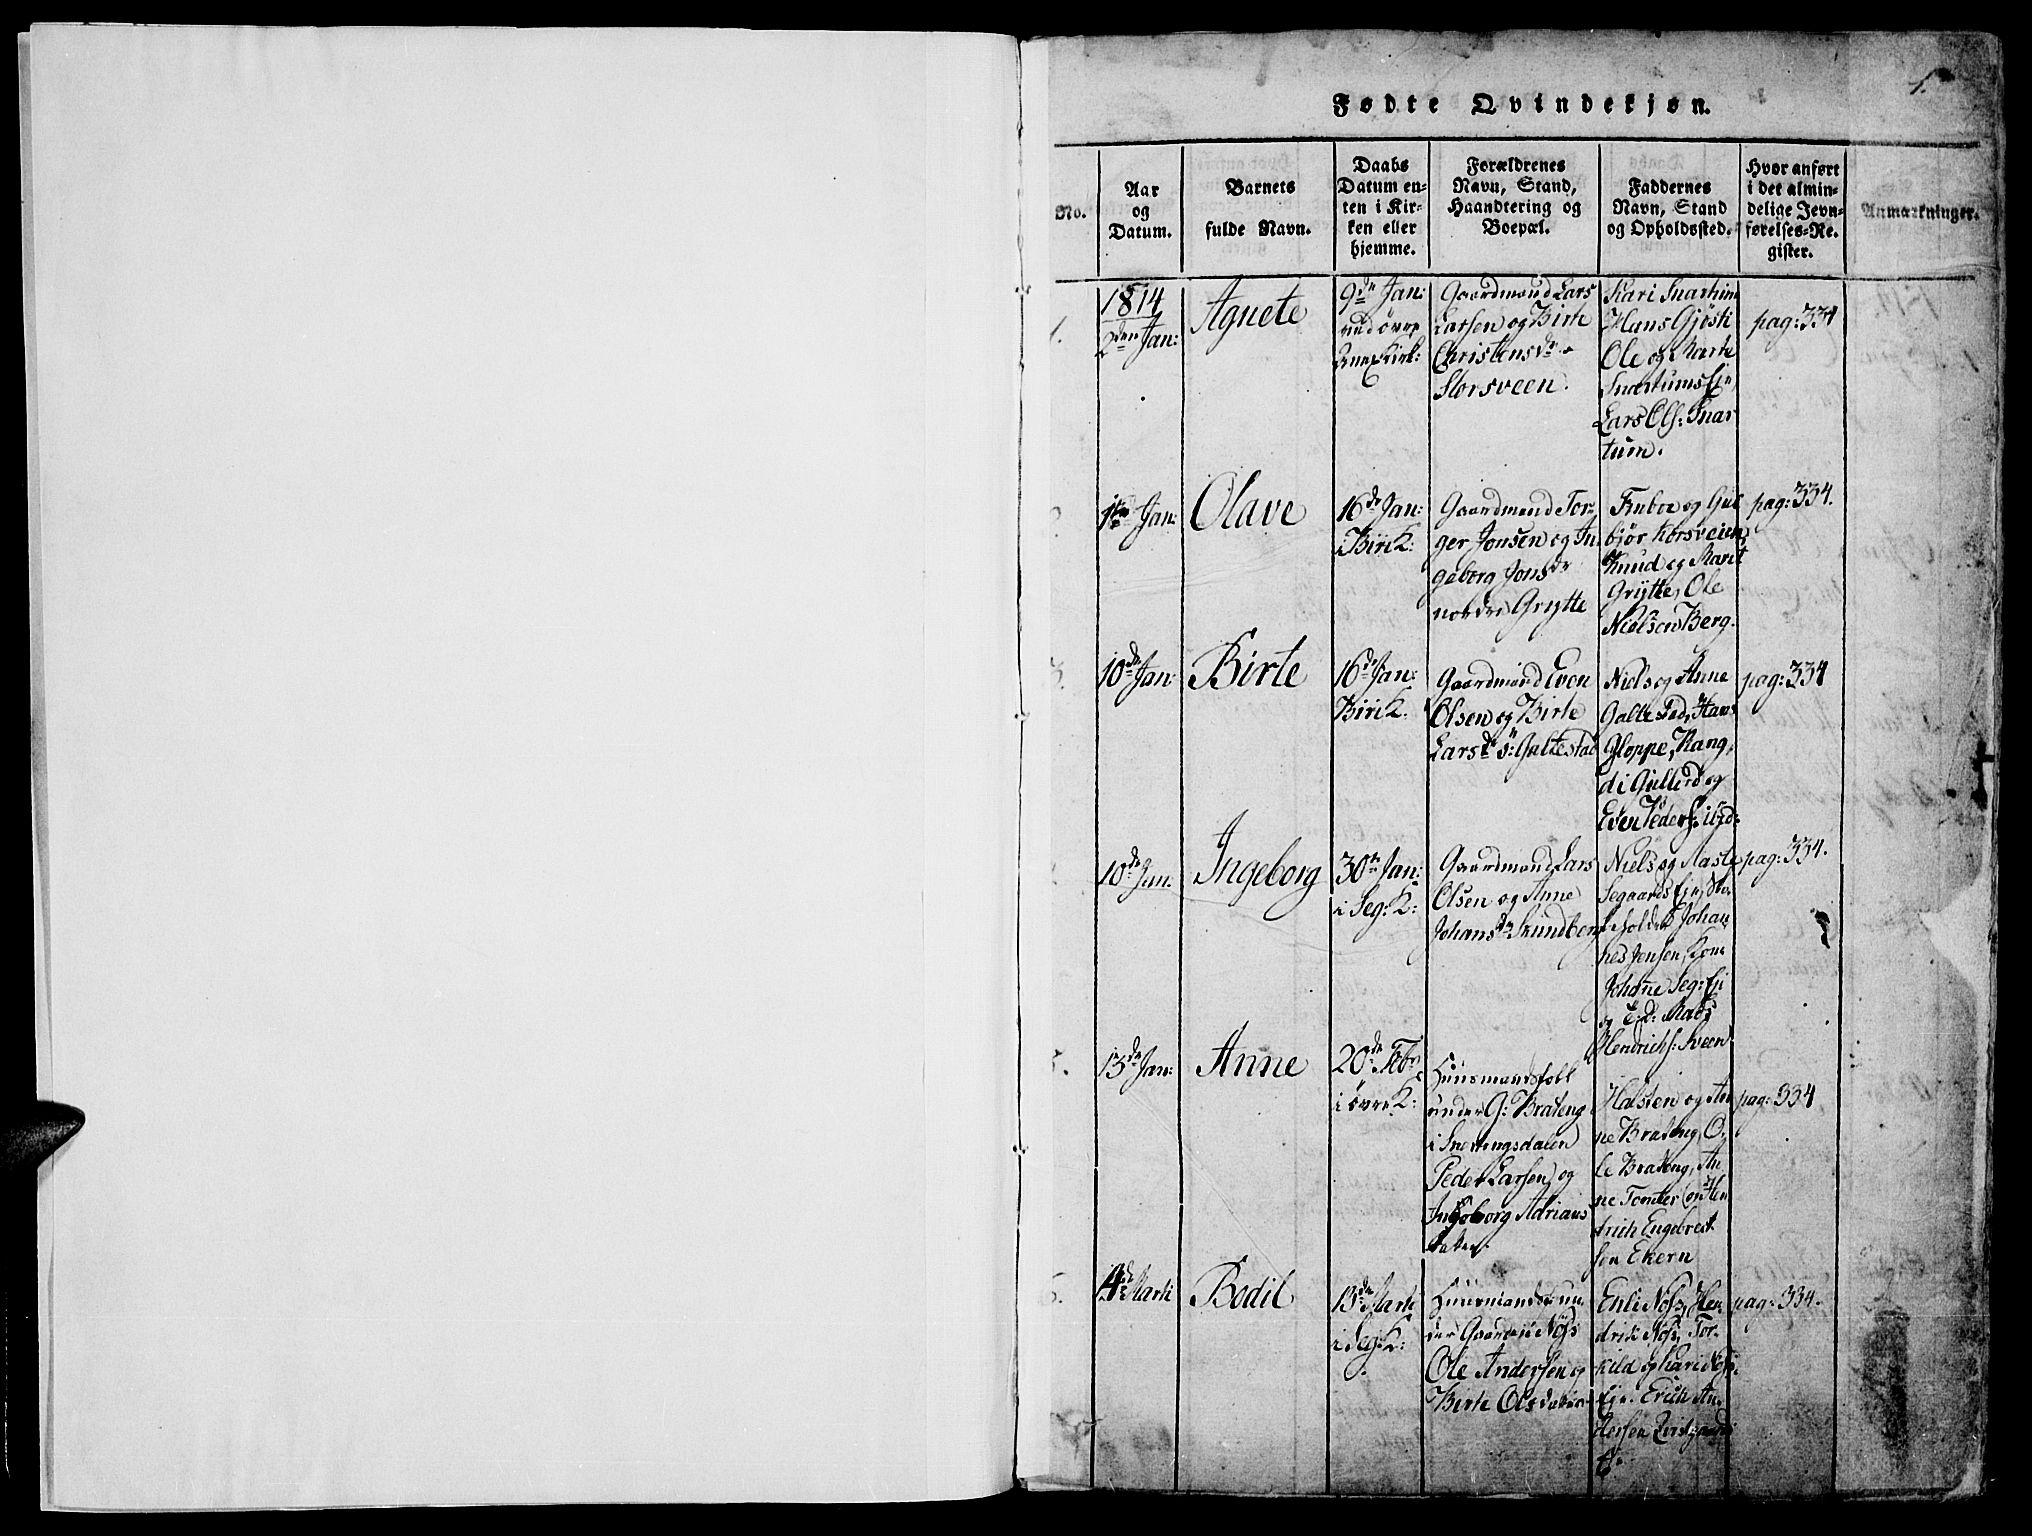 1.
Fødte Qvindekjøn.
No.
Aar
og
Datum.
Barnets
fulde Navn.
Daabs
Datum en-
ten i Kir-
ken eller
hjemme.
Forældrenes
Navn, Stand,
Haandtering og
Boepæl.
Faddernes
Navn, Stand
og Opholdssted.
Hvor anført
i det almin-
delige Jevn-
førelses-Re-
gister.
Anmærkninger.
1.
1814
2den Jan:
Agnete
9de Jan:
Kirk:
Gaardmand Lars
Larsen og Birte
Christensdr
Storsveen.
Kari
Hans Gjösti
Ole og Marte
Lars Ols: Snar
tum.
pag: 334
Jan:
Olave
16de Jan:
i Biri K:
Gaardmand Tor
ger Jonsen og In
geborg Jonsdr
nordre Grytte
og Gul
björ Korsveien,
Knud og Marit
Grytte, Ole
Nielsen Berg.
pag: 334.
3.
10de Jan:
Birte
16de Jan:
Biri K.
Gaardmand Even
Olsen og Birte
Larsdr s: Galtestad
Niels og Anne
Galtestad, Hans
Gloppe, Rang,
di Gullerd og
Even Peders:
pag: 334
10de Jan:
Ingeborg
30te Jan:
i Seg: K:
Gaardmand Lars
Olsen og Anne
Johansdr Skundberg
Niels og Maste
Segaards
Johan
nes Jensen, Kone
Johanne Seg: Ej
og Mads
Hendrichs: Sveen
pag: 334.
5.
13de Jan:
Anne
20de Febr
i övre K:
Huusmandsfolk
under G: Brateng
i Snertingsdalen
Peder Larsen og
Ingeborg Adrians
datter.
Halsten og An
ne Brateng, O,
le Brateng, An
ne Tomter og Hen
drich Engebret
sen Ekern
pag: 334
6.
4de Marti
Bodil
13de Marti
i Seg: K:
Huusmand un
der Nöss
Ole Andersen og
Birte Olsdatter
Nöss, Hen
drik Nöss, Tor
kild og Kari Nöss
Eje. Erich An
dersen
pag: 334.